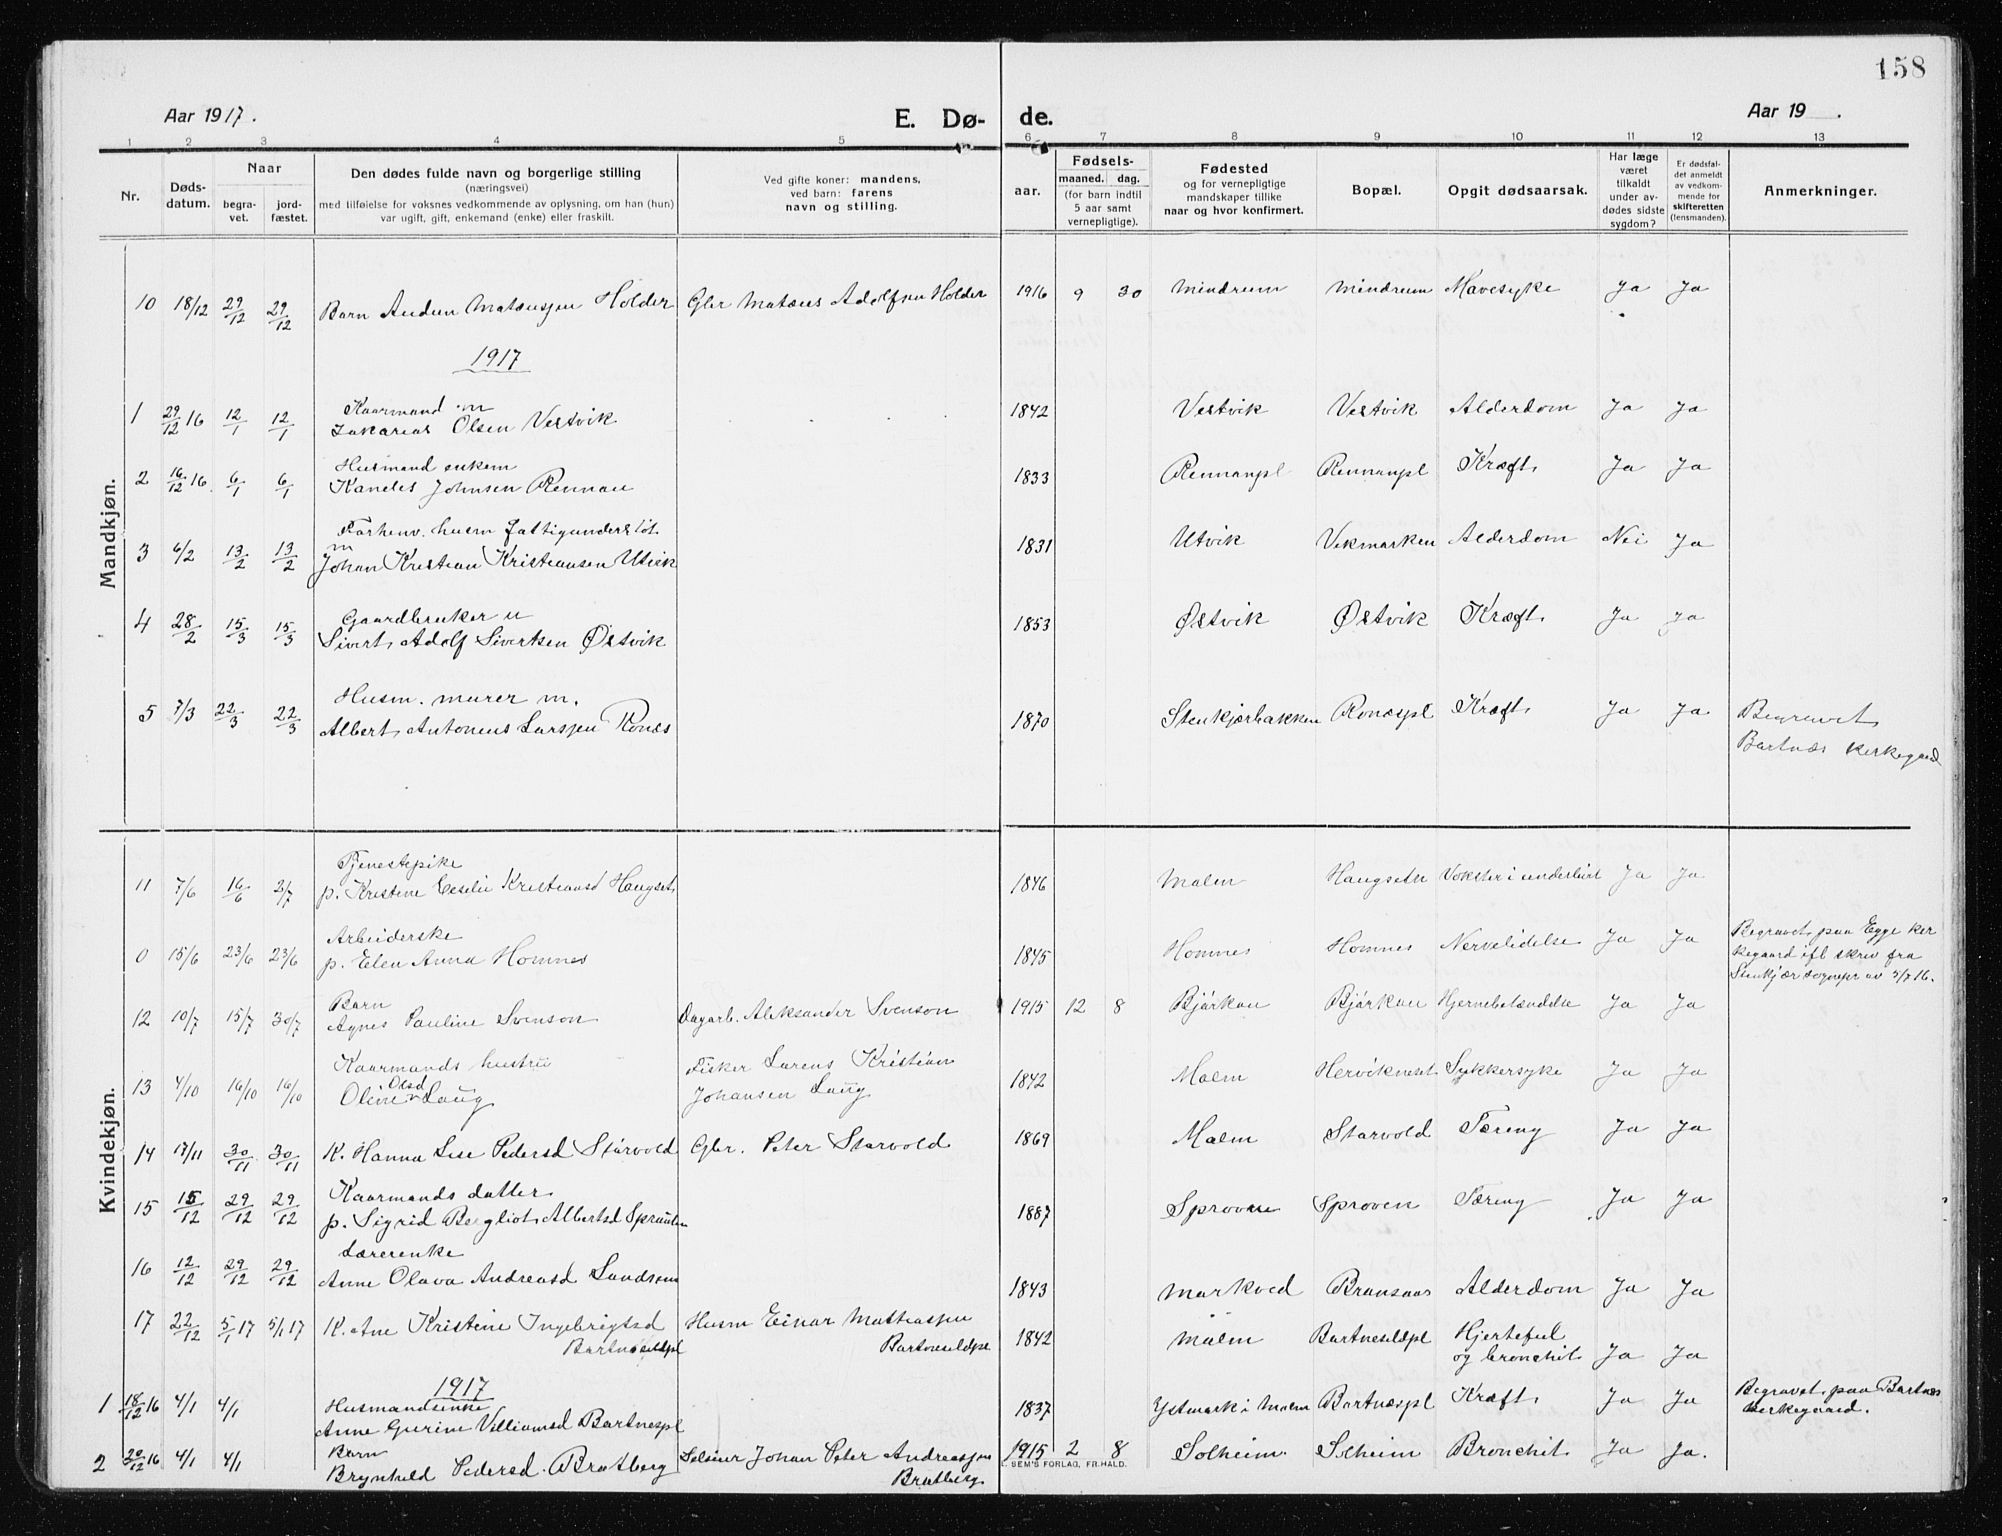 158
Aar 1917.
E. Dø- de.
Aar 19 .
1 2 3 4 5 6 7 8 9 10 11 12 13
Nr.
Døds-
datum.
Naar
begra-
vet.
jord-
fæstet.
Den dødes fulde navn og borgerlige stilling
(næringsvei)
med tilføielse for voksnes vedkommende av oplysning, om han (hun)
var ugift, gift, enkemand (enke) eller fraskilt.
Ved gifte koner: mandens,
ved barn: farens
navn og stilling.
aar.
Fødsels-
maaned. dag.
(for barn indtil
5 aar samt
vernepligtige).
Fødested
og for vernepligtige
mandskaper tillike
naar og hvor konfirmert.
Bopæl.
Opgit dødsaarsak.
Har læge
været
tilkaldt
under av-
dødes sidste
sygdom?
Er dødsfal-
det anmeldt
av vedkom-
mende for
skifteretten
(lensmanden).
Anmerkninger.
Mandkjøn.
10 18/12 29/12 29/12 Barn Holder Gbr Matæus Adolfsen Holder 1916 9 30 Mindrum Mindrum Mavesyke Ja Ja
1917
Kaarmand m
1 29/12 16 12/1 12/1 Zakarias Olsen Vestvik 1842 Vestvik Vestvik Alderdom Ja Ja
Husmand enkem
2 16/12 16. 6/1 6/1 Johnsen Rennan 1833 Rennanpl Rennanpl Kræft Ja Ja
Forhenv. husm fattigunderstøt
m
3 6/2 13/2 13/2 Johan Kristian Kristiansen Utvik 1831 Utvik Vekmarken Alderdom Nei Ja
Gaardbruker u
4 28/2 15/3 15/3 Sivert Adolf Sivertsen Østvik 1853 Østvik Østvik Kræft Ja Ja
Husm. murer m.
5 7/3 22/3 22/3 Albert Antonius Larssen Ronæs 1870 Stenkjærbakken Ronæspl Kræft Ja Ja Begravet
Bartnæs Kirkegaard
Kvindekjøn.
Tjenestepike
11 7/6 16/6 2/7 p. Kristine Kristiansd Haugset 1846 Malm Haugsetn Vokster i underlivet Ja Ja
Arbeiderske
0 15/6 23/6 23/6 p. Elen Anna Homnes 1845 Homnes Homnes Nervelidelse Ja Ja Begravet paa Egge kir
kegaard ifl skriv fra
Stenkjær sognepr av 3/7 16.
Barn
12 10/7 15/7 30/7 Agnes Pauline Svenson Dagarb. Aleksander Svenson 1915 12 8 Bjørkan Bjørkan Hjernebetændelse Ja Ja
Kaarmands hustru Fisker Lorens Kristian
Olsd
13 4/10 16/10 16/10 Oline Laug Johansen Laug 1842 Malm Hervikneset Sukkersyke Ja Ja
14 17/11 30/11 30/11 K. Hanna Lise Pedersd Størvold Gbr. Peter Størvold 1869 Malm Størvold Tæring Ja Ja
Kaarmands datter
15 15/12 29/12 29/12 p. Sigrid Bergliot Albertsd 1887 Sproven Sproven Tæring Ja Ja
Lærerenke
16 12/12 29/12 29/12 Anne Olava Andreasd 1843 Markved Bransaas Alderdom Ja Ja
17 22/12 5/1 17 5/1 17 K. Ane Kristine Ingebrigtsd Husm Einar Mattiassen 1842 Malm Bartneseldpl Hjertefeil
Bartneseldpl Bartneseldpl og bronchit Ja Ja
1917
Husmandsenke
1 18/12 16 4/1 4/1 Anne Gurine Villiamsd Bartnespl 1837 Ystmark i Malm Bartnæspl Kræft Ja Ja Begravet paa Bartnæs
kirkegaard.
Barn
2 20/12 16 4/1 4/1 Brynhild Pedersd. Bratberg Selveier Johan Peter Andreassen 1915 2 8 Solheim Solheim Bronchit Ja Ja.
Bratberg
SEM'S FORLAG, FR.HALD.